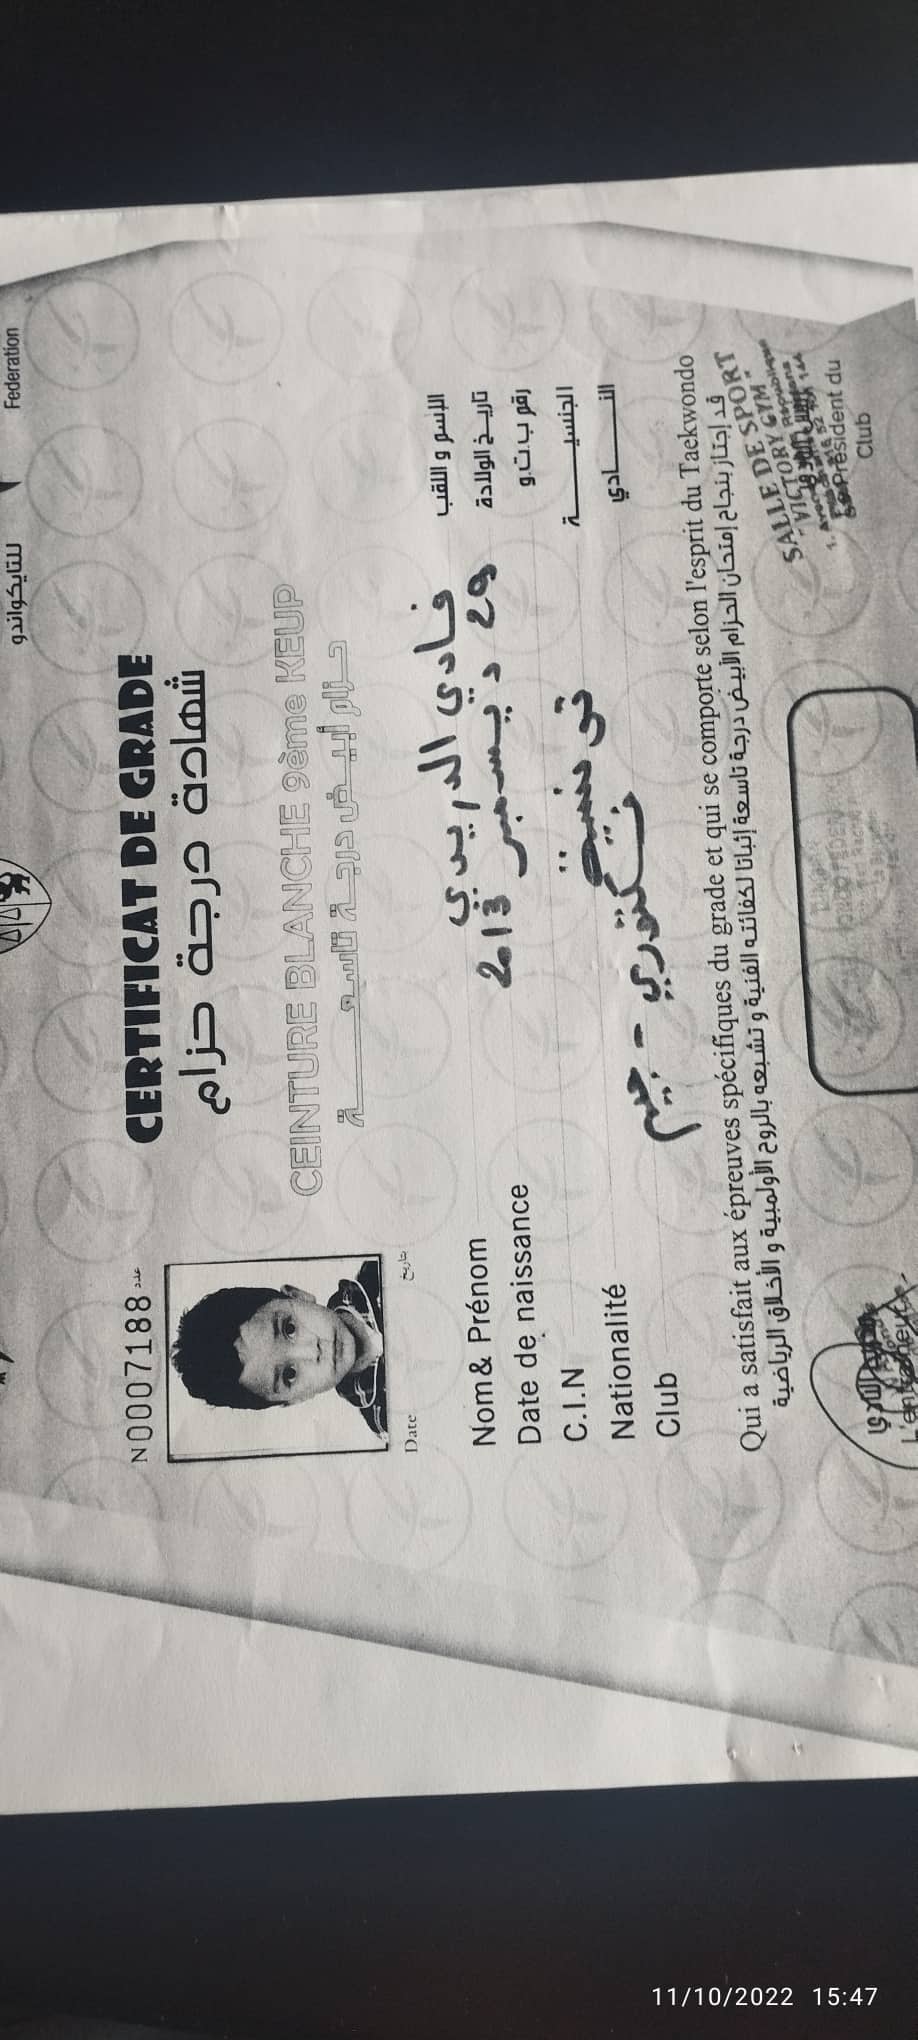 للتايكواندو
Federation
N 0007188 عدد
CERTIFICAT DE GRADE
شهادة درجة حزام
CEINTURE BLANCHE 9ème KEUP
حزام أبيض درجة تاسعة
Date تاريخ
Nom & Prénom فادي الدريدي الإسم و اللقب
Date de naissance 29 ديسمبر 2013 تاريخ الولادة
C.I.N رقم ب.ت.و
Nationalité تونسية الجنسية
Club فيكتوري - جيم النادي
Qui a satisfait aux épreuves spécifiques du grade et qui se comporte selon l'esprit du Taekwondo
قد إجتاز بنجاح إمتحان الحزام الأبيض درجة تاسعة إثباتا لكفائته الفنية و تشبعه بالروح الأولمبية و الأخلاق الرياضية
SALLE DE SPORT
VICTORY GYM
Le Président du
Club
L'entraineur
11/10/2022 15:47